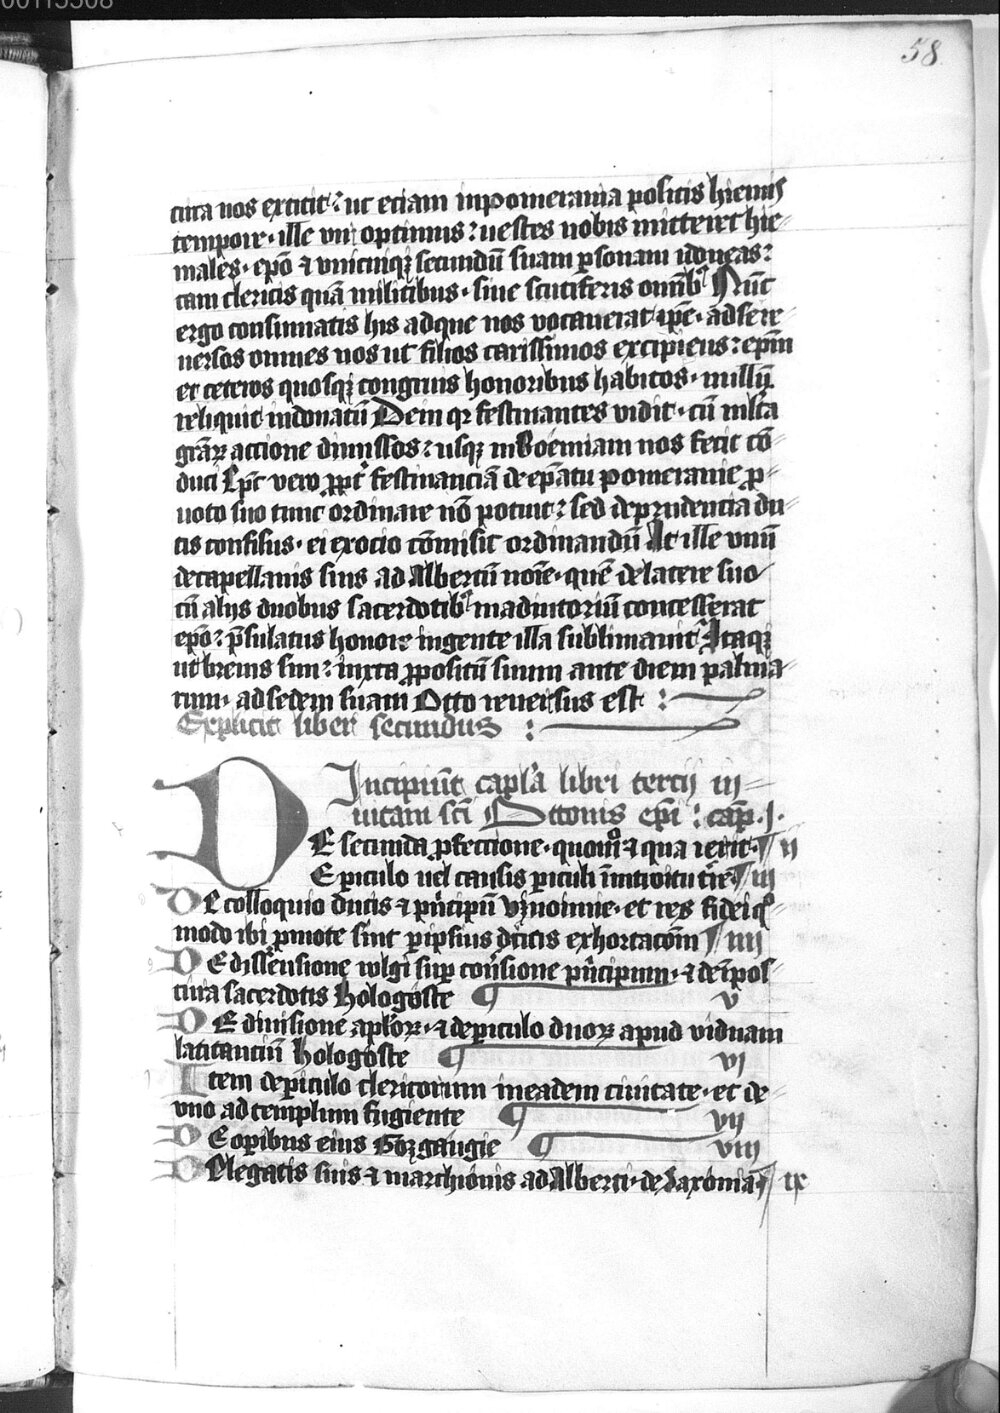 58
cura nos excicit: ut eciam inpomerania positis hiemis
tempore· ille vir optimus: uestes nobis mitteret hie-
males· ep̄o ⁊ vnicuiqꝫ secundū suam ꝑsonam ydoneas:
tam clericis quā militibus· siue scutiferis omībꝰ Nūc
ergo consūmatis his adque nos vocauerat ip̄e· adsere
uersos omnes nos ut filios carissimos excipiens: ep̄m
et ceteros quosqꝫ congruis honoribus habitos· nullū
reliquit indonatū Dein qꝛ festinantes vidit· cū m̄lta
gr̄aꝝ actione dimissos: usqꝫ inBoemiam nos fecit cō-
duci vero ꝓpt̄ festinanciā de ep̄atu pomeranie ꝓ-
uoto suo tunc ordinare nō potuit: sed deprudencia du-
cis confisus· ei exocio cōmisit ordinandū At ille vnū
decapellanis suis adAlbertū noīe· quē delatere suo
cū alijs duobus sacerdotibꝰ inadiutoriū concesserat
ep̄o: p̄sulatus honore ingente illa sublimauit Itaqꝫ
ut breuis sim: iuxta ꝓpositū suum ante diem palma-
rum· adsedem suam Otto reuersus est :
Explicit liber secundus :
Incipiūt capl̄a libri tercij in
uitam sc̄i Ottonis ep̄i : cap̄· j·
DE secunda ꝓfeccione· quomō ⁊ qua ierit· ij
E ꝑiculo uel causis ꝑiculi īintroitu tr̄e iij
DE colloquio ducis ⁊ prīncipū vznoimie· et res fidei qͦ-
modo ibi ꝑmote sint ꝑ ipsius ducis exhortacōm iiij
DE dissensione wlgi suꝑ cōuersione prīncipum· ⁊ de īpos-
tura sacerdotis hologoste v
DE diuisione apl̄oꝝ· ⁊ deꝑiculo duoꝝ apud viduam
latitanciū hologoste vj
Item deꝑiculo clericorum ineadem ciuitate· et de
vno ad templum fugiente vij
DE oꝑibus eius Gozgaugie viij
DElegatis suis ⁊ marchionis adAlberti· de saxonia ix